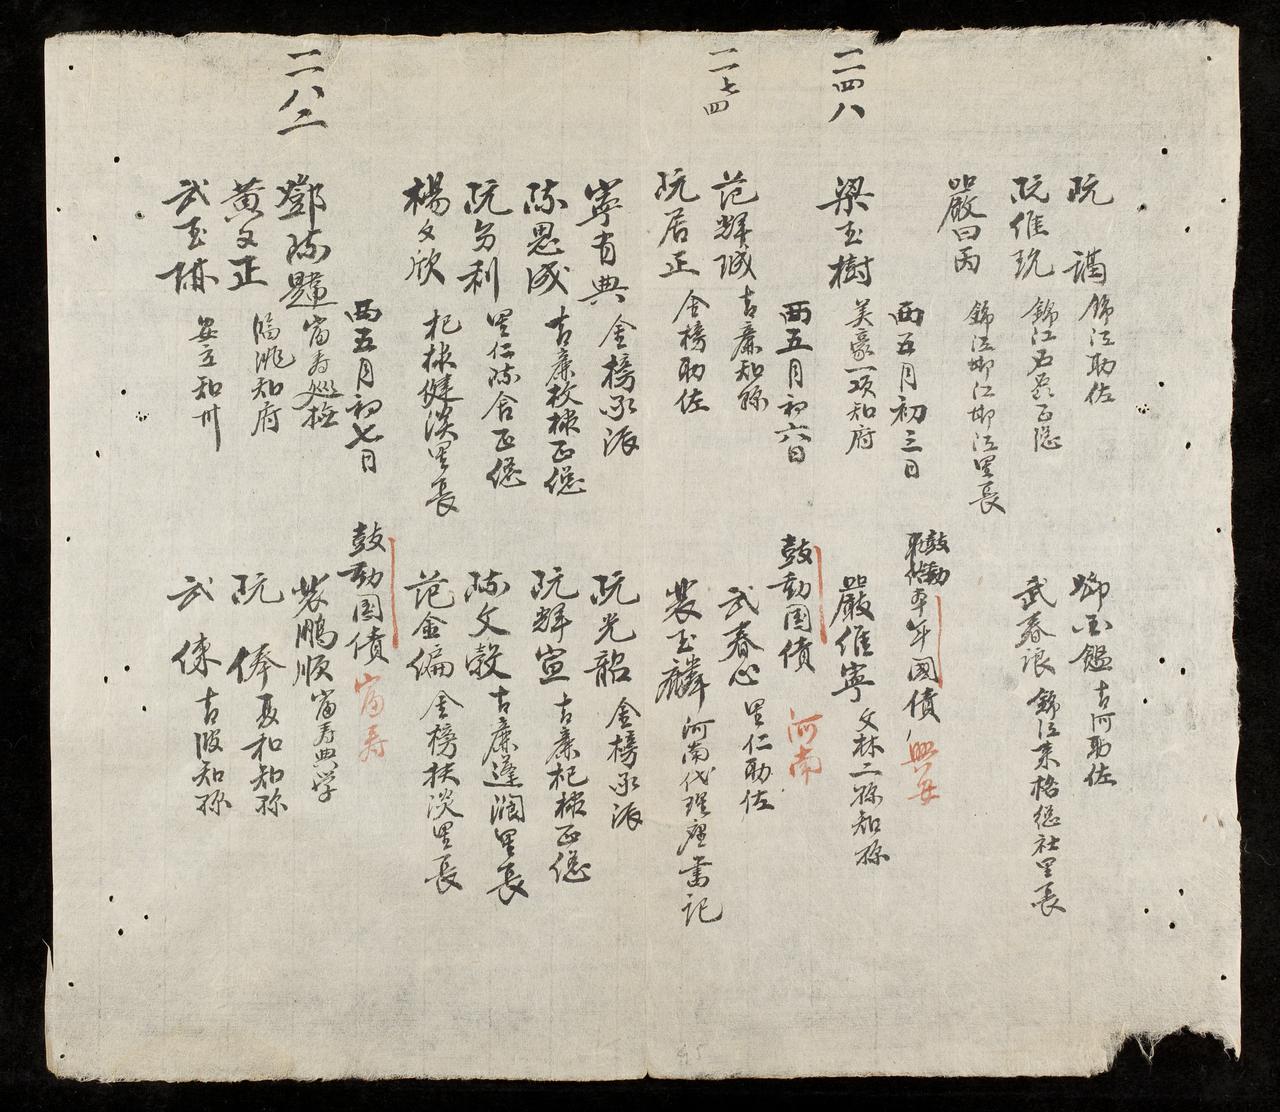 阮 謹 錦江助佐
鄧玉鑑 古河助佐
阮維玩 錦江
武春浪 錦江來格總社里長
嚴曰丙 錦江里長
二四八
西五月初三日
鼓動本年國債 興安
梁玉樹 美豪一項知府
嚴維寧 文林二縣知縣
西五月初六日
鼓動国債 河南
二七四
范輝誠 古廉知縣
武春心 里仁助佐
阮居正 金榜助佐
裴玉麟 河南代理座書記
寧有典 金榜承派
阮光韶 金榜承派
陳思成 古廉枚棣正總
阮輝宣 古廉杞棣正總
阮勿利 里仁陳舍正總
陳文毅 古廉蓬濶里長
楊文欣 杞棣健淡里長
范金偏 金榜扶淡里長
西五月初七日
鼓動国債 富寿
二八二
鄧陳 富寿巡撫
裴鵬順 富寿典学
黄文正 臨洮知府
阮 俸 夏和知縣
武玉 安立知州
武 倲 知縣